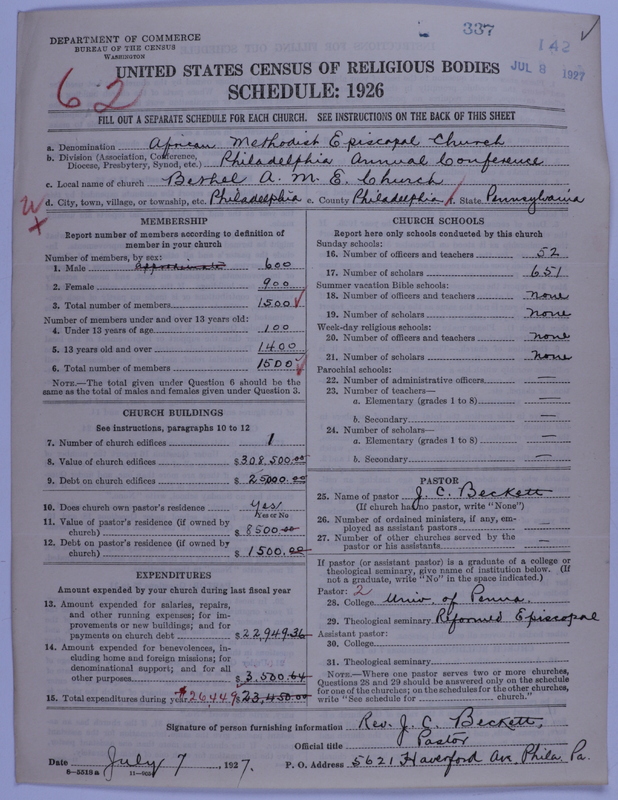 337
142
JUL 8 1927
DEPARTMENT OF COMMERCE
BUREAU OF THE CENSUS
WASHINGTON
UNITED STATES CENSUS OF RELIGIOUS BODIES
SCHEDULE: 1926
62
FILL OUT A SEPARATE SCHEDULE FOR EACH CHURCH. SEE INSTRUCTIONS ON THE BACK OF THIS SHEET
a. Denomination African Methodist Episcopal Church
b. Division (Association, Conference, Diocese, Presbytery, Synod, etc.) Philadelphia Annual Conference
c. Local name of church Bethel A. M. E. Church
d. City, town, village, or township, etc. Philadelphia e. County Philadelphia f. State Pennsylvania
MEMBERSHIP
Report number of members according to definition of
member in your church
Number of members, by sex:
1. Male Approximate 600
2. Female 900
3. Total number of members 1500
Number of members under and over 13 years old:
4. Under 13 years of age 100
5. 13 years old and over 1400
6. Total number of members 1500
NOTE.—The total given under Question 6 should be the
same as the total of males and females given under Question 3.
CHURCH BUILDINGS
See instructions, paragraphs 10 to 12
7. Number of church edifices 1
8. Value of church edifices $308,500.00
9. Debt on church edifices $25000.00
10. Does church own pastor's residence Yes
Yes or No
11. Value of pastor's residence (if owned by
church) $8500.00
12. Debt on pastor's residence (if owned by
church) $1500.00
EXPENDITURES
Amount expended by your church during last fiscal year
13. Amount expended for salaries, repairs,
and other running expenses; for im-
provements or new buildings; and for
payments on church debt $22,949.36
14. Amount expended for benevolences, in-
cluding home and foreign missions; for
denominational support; and for all
other purposes $3,500.64
15. Total expenditures during year $26449 $23,450.00
CHURCH SCHOOLS
Report here only schools conducted by this church
Sunday schools:
16. Number of officers and teachers 52
17. Number of scholars 651
Summer vacation Bible schools:
18. Number of officers and teachers none
19. Number of scholars none
Week-day religious schools:
20. Number of officers and teachers none
21. Number of scholars none
Parochial schools:
22. Number of administrative officers —
23. Number of teachers—
a. Elementary (grades 1 to 8) —
b. Secondary —
24. Number of scholars—
a. Elementary (grades 1 to 8) —
b. Secondary —
PASTOR
25. Name of pastor J. C. Beckett
(If church has no pastor, write "None")
26. Number of ordained ministers, if any, em-
ployed as assistant pastors —
27. Number of other churches served by the
pastor or his assistants —
If pastor (or assistant pastor) is a graduate of a college or
theological seminary, give name of institution below. (If
not a graduate, write "No" in the space indicated.)
Pastor: 2
28. College Univ. of Penna.
29. Theological seminary Reformed Episcopal
Assistant pastor:
30. College
31. Theological seminary
NOTE.—Where one pastor serves two or more churches,
Questions 28 and 29 should be answered only on the schedule
for one of the churches; on the schedules for the other churches,
write "See schedule for church."
Signature of person furnishing information Rev. J. C. Beckett,
Official title Pastor
Date July 7, 1927. P. O. Address 5621 Haverford Ave. Phila Pa.
8—5519a